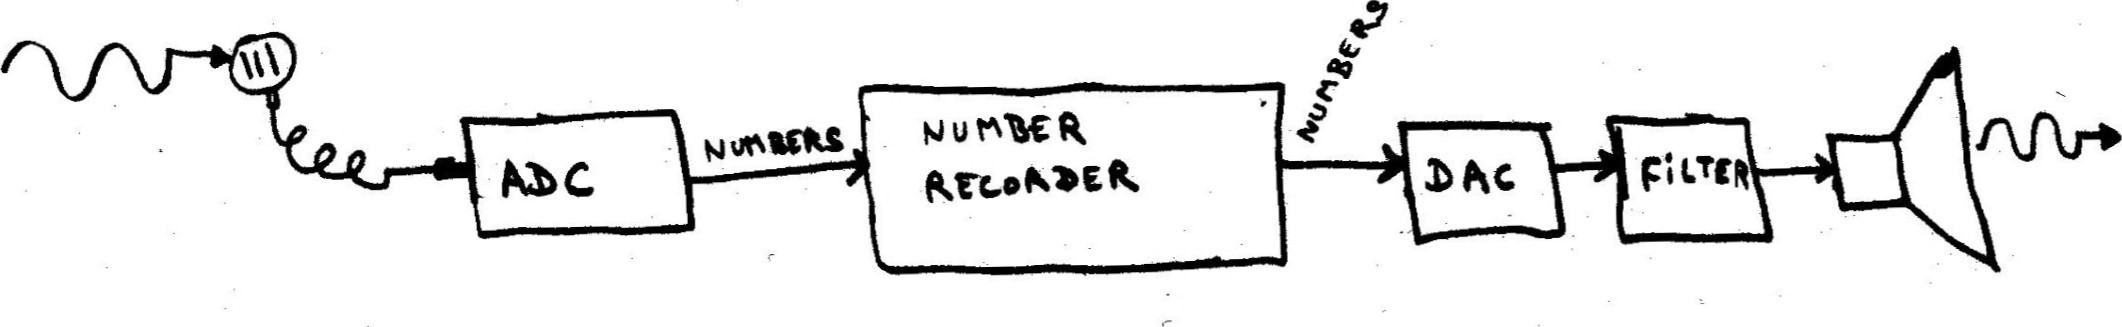 ADC
NUMBERS
NUMBER
RECORDER
NUMBERS
DAC
FiLTER